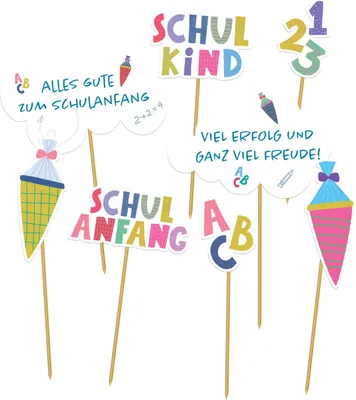 SCHUL
KIND
1
2
3
ABC
ALLES GUTE
ZUM SCHULANFANG
2+2=4
VIEL ERFOLG UND
GANZ VIEL FREUDE!
ABC
SCHUL
ANFANG
ABC